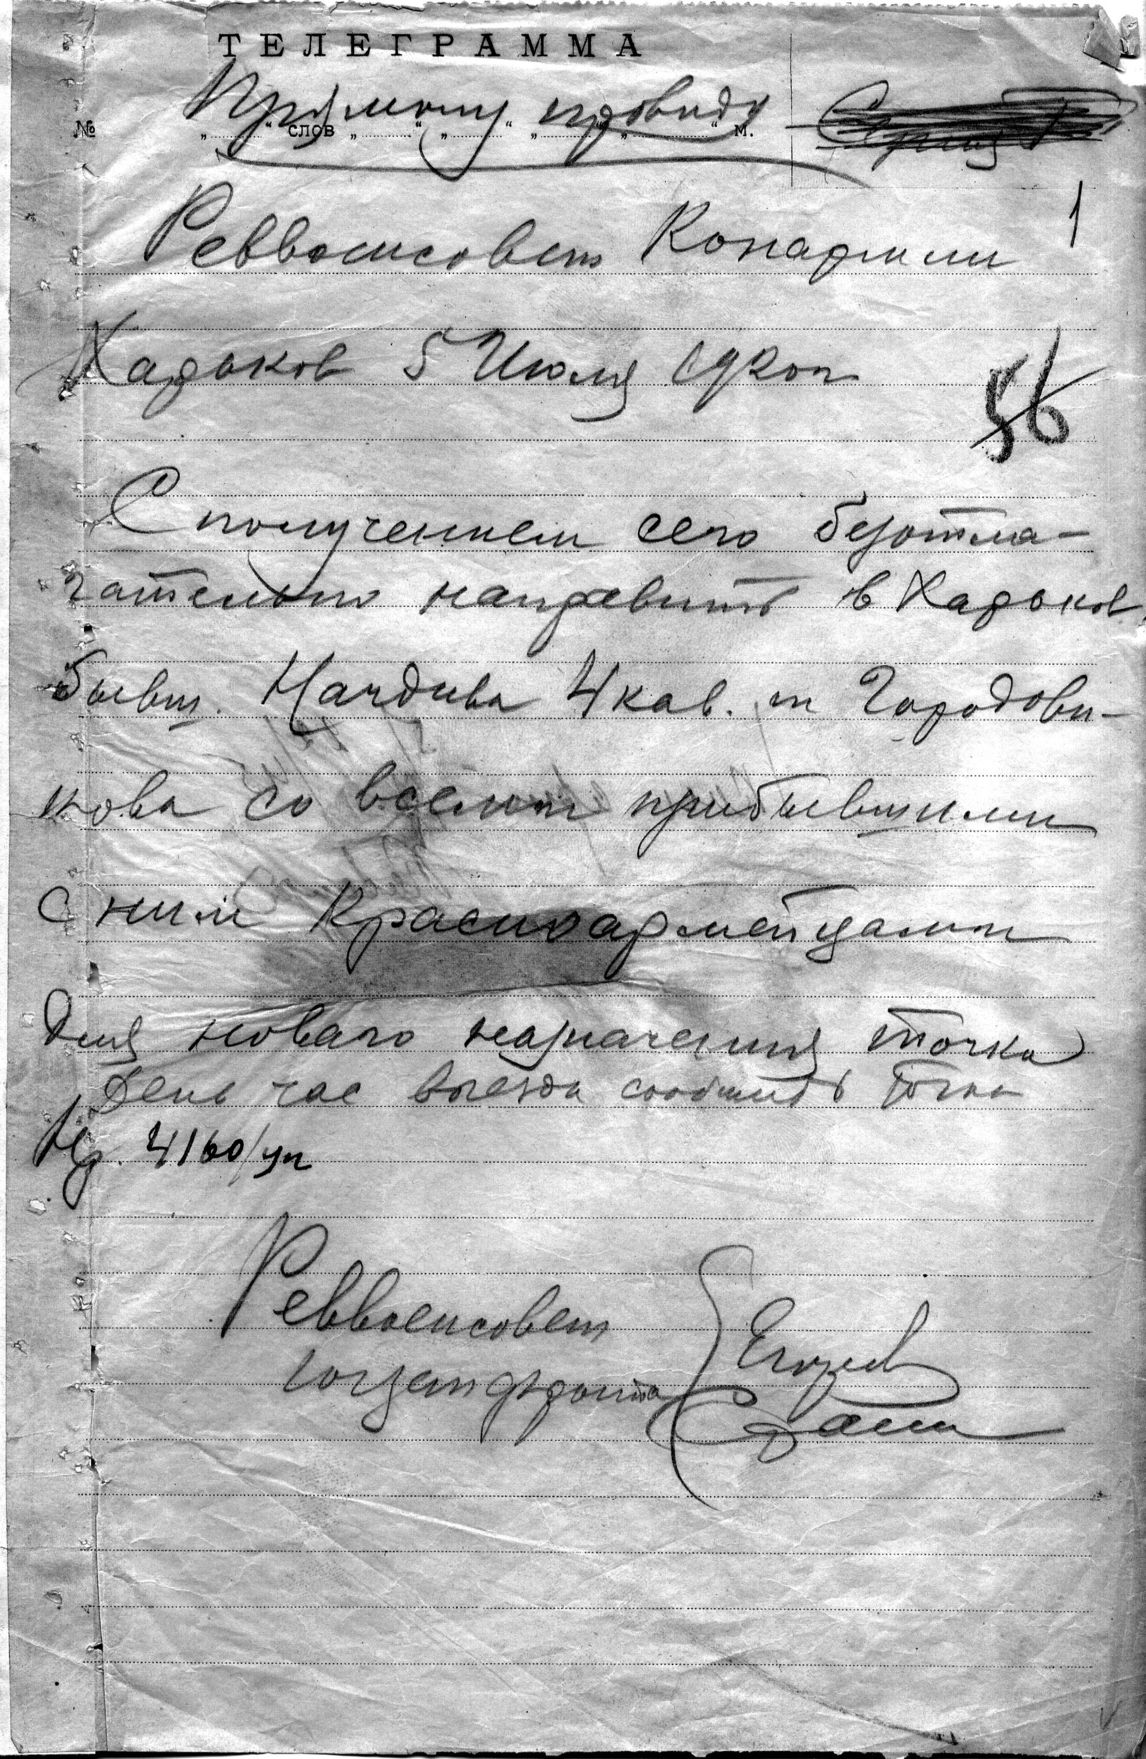 ТЕЛЕГРАММА
Прямому проводу
№ слов м.
1
Реввоенсовет Конармии
Харьков 5 Июля 1920 г
56
С получением сего безотла-
гательно направить в Харьков
бывш. Начдива 4 кав. т Городови-
кова со всеми прибывшими
с ним Красноармейцами
для новаго назначения точка
День час выезда сообщить точка
Нр. 4160/уп
Реввоенсовет Егоров
югзапфронта